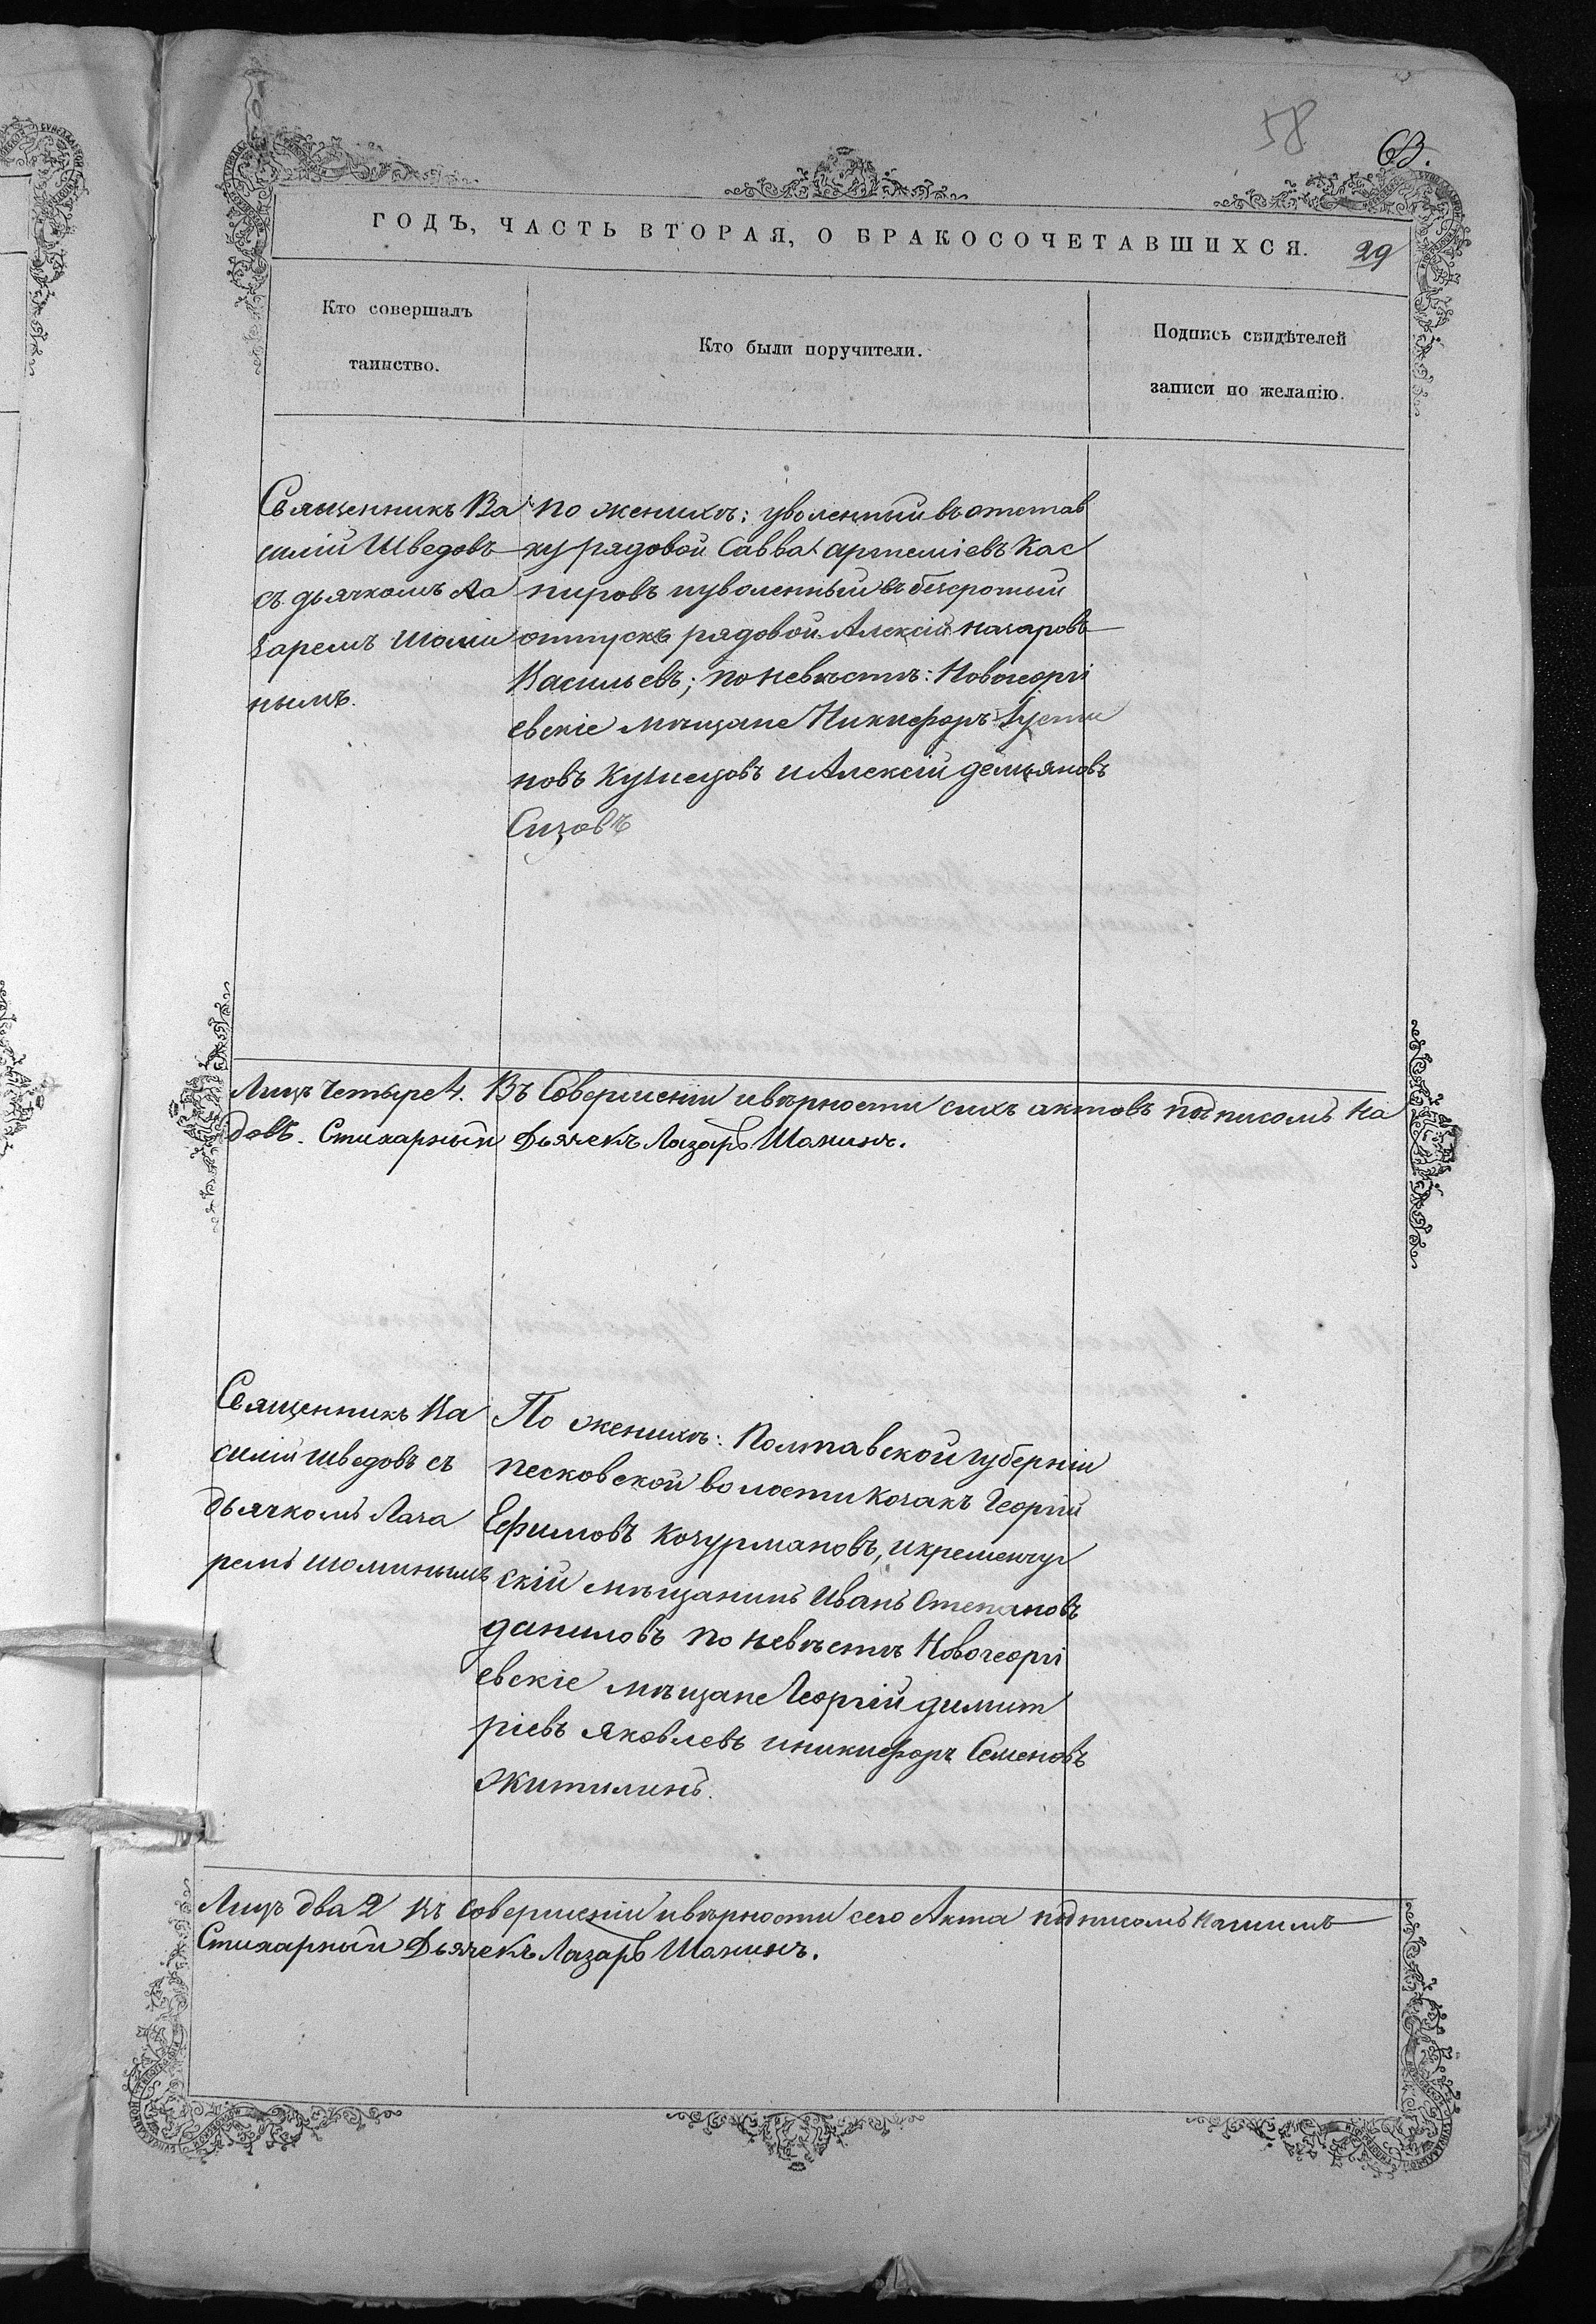 58
63.
ГОДЪ, ЧАСТЬ ВТОРАЯ, О БРАКОСОЧЕТАВШИХСЯ. 29
Кто совершалъ
таинство.
Кто были поручители.
Подпись свидѣтелей
записи по желанію.
Священникъ Ва
силій Шведовъ
съ дьячкомъ Ла
заремъ Шоми
нымъ.
По женихѣ: уволенный въ отстав
ку рядовой Савва Артеміевъ Кас
пировъ и уволенный въ безсрочный
отпускъ рядовой Алексій Назаровъ
Васильевъ; по невѣстѣ: Новогеоргі
евскіе мѣщане Никифоръ Густи
новъ Кузнецовъ и Алексій Демьяновъ
Сизовъ
Лицъ четыре 4. Въ Совершеніи и вѣрности сихъ актовъ подписомъ На
довъ. Стихарный Дьячекъ Лазарь Шоминъ.
Священникъ Ва
силій Шведовъ съ
дьячкомъ Лаза
ремъ Шоминымъ
По женихѣ: Полтавской губерніи
Песковской волости козакъ Георгій
Ефимовъ Кочурмановъ, и кременчуг
скій мѣщанинъ Иванъ Степановъ
Даниловъ по невѣстѣ Новогеоргі
евскіе мѣщане Георгій Димит
ріевъ Яковлевъ и Никифоръ Семеновъ
Житилинъ.
Лицъ два 2 Въ совершеніи и вѣрности сего Акта подписомъ нашимъ
Стихарный Дьячекъ Лазарь Шоминъ.